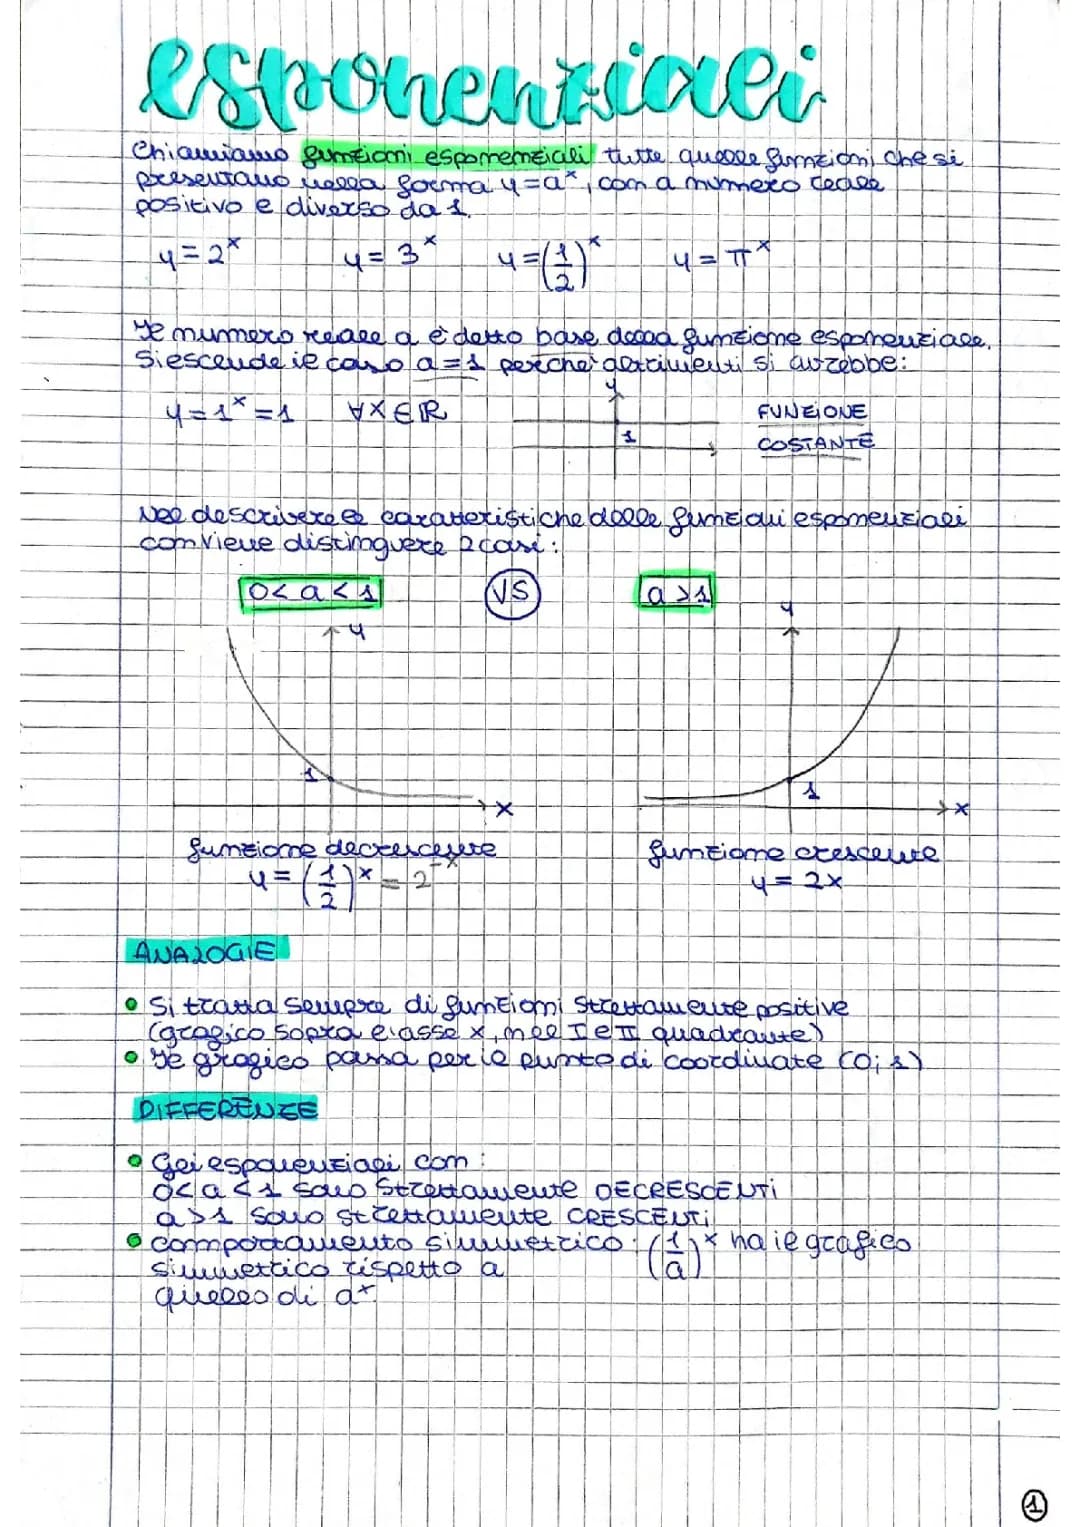 esponenziali
Chiamiamo funzioni esponenziali tutte quelle funzioni che si
presentano nella forma y=aˣ, con a numero reale
positivo e diverso da 1.
y=2ˣ y=3ˣ y=(1/2)ˣ y=πˣ
Il numero reale a è detto base della funzione esponenziale.
Si esclude il caso a=1 perché altrimenti si avrebbe:
y=1ˣ=1 ∀x∈ℝ y FUNZIONE
1 COSTANTE
Nel descrivere le caratteristiche delle funzioni esponenziali
conviene distinguere 2 casi:
0<a<1 VS a>1
y y
1 1
x x
funzione decrescente funzione crescente
y=(1/2)ˣ=2⁻ˣ y=2x
ANALOGIE
• Si tratta sempre di funzioni strettamente positive
(grafico sopra l'asse x, nel I e II quadrante)
• Il grafico passa per il punto di coordinate (0;1)
DIFFERENZE
• Gli esponenziali con:
0<a<1 sono strettamente DECRESCENTI
a>1 sono strettamente CRESCENTI
• comportamento simmetrico: (1/a)ˣ ha il grafico
simmetrico rispetto a
quello di aˣ
1